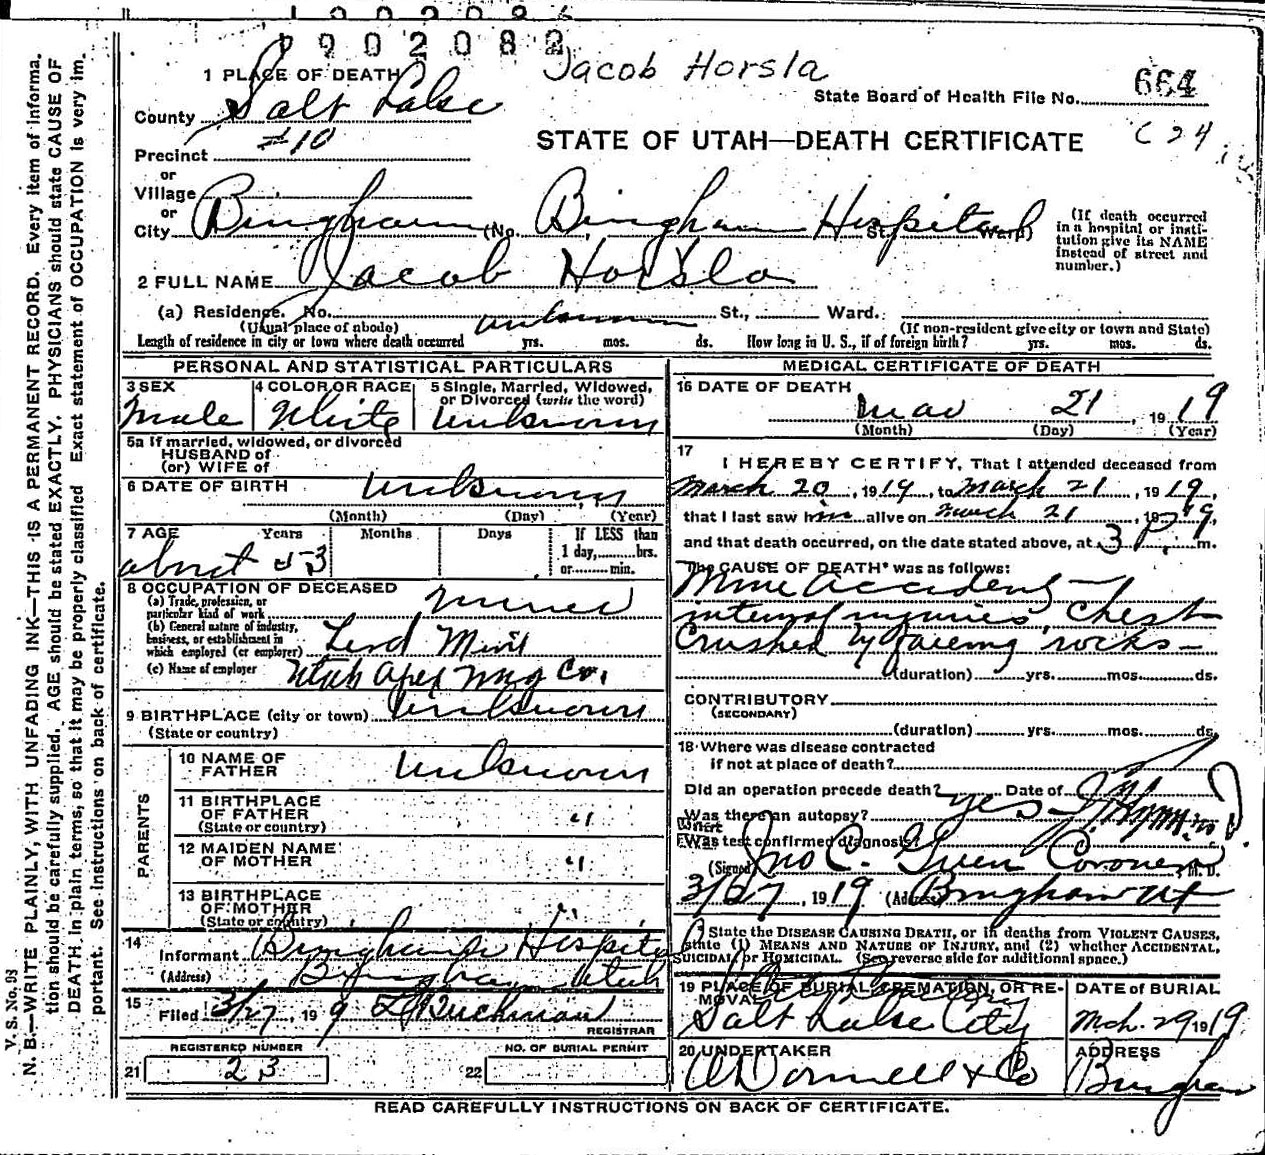 1902082
Jacob Horsla
1 PLACE OF DEATH
State Board of Health File No. 664
County Salt Lake
C 24
Precinct #10
STATE OF UTAH—DEATH CERTIFICATE
or
Village
or
City Bingham (No. Bingham Hospital St. Ward)
(If death occurred in a hospital or institution give its NAME instead of street and number.)
2 FULL NAME Jacob Horsla
(a) Residence. No. unknown St., Ward.
(Usual place of abode) (If non-resident give city or town and State)
Length of residence in city or town where death occurred yrs. mos. ds. How long in U. S., if of foreign birth? yrs. mos. ds.
PERSONAL AND STATISTICAL PARTICULARS
3 SEX
Male
4 COLOR OR RACE
White
5 Single, Married, Widowed, or Divorced (write the word)
Unknown
5a If married, widowed, or divorced
HUSBAND of
(or) WIFE of
6 DATE OF BIRTH Unknown
(Month) (Day) (Year)
7 AGE Years Months Days If LESS than 1 day, hrs. or min.
about 53
8 OCCUPATION OF DECEASED
(a) Trade, profession, or particular kind of work Miner
(b) General nature of industry, business, or establishment in which employed (or employer) Lead Mine
(c) Name of employer Utah Apex Mng Co.
9 BIRTHPLACE (city or town) Unknown
(State or country)
PARENTS
10 NAME OF FATHER Unknown
11 BIRTHPLACE OF FATHER (State or country) "
12 MAIDEN NAME OF MOTHER "
13 BIRTHPLACE OF MOTHER (State or country) "
14
Informant Bingham Hospital
(Address) Bingham Utah
15
Filed 3/27, 1919
REGISTRAR
REGISTERED NUMBER
21 23
NO. OF BURIAL PERMIT
22
MEDICAL CERTIFICATE OF DEATH
16 DATE OF DEATH
Mar 21, 1919
(Month) (Day) (Year)
17
I HEREBY CERTIFY, That I attended deceased from
March 20, 1919, to March 21, 1919,
that I last saw him alive on March 21, 1919,
and that death occurred, on the date stated above, at 3 P. m.
The CAUSE OF DEATH* was as follows:
Mine Accident—
internal injuries, chest
crushed by falling rocks—
(duration) yrs. mos. ds.
CONTRIBUTORY
(SECONDARY)
(duration) yrs. mos. ds.
18 Where was disease contracted
if not at place of death?
Did an operation precede death? Date of
Was there an autopsy? yes
What test confirmed diagnosis?
(Signed) Jno C. Green Coroner M. D.
3/27, 1919 (Address) Bingham Ut
State the DISEASE CAUSING DEATH, or in deaths from VIOLENT CAUSES, state (1) MEANS AND NATURE OF INJURY, and (2) whether ACCIDENTAL, SUICIDAL, or HOMICIDAL. (See reverse side for additional space.)
19 PLACE OF BURIAL, CREMATION, OR REMOVAL
Salt Lake City
DATE OF BURIAL
Mch. 29 1919
20 UNDERTAKER
O'Donnell & Co
ADDRESS
Bingham
READ CAREFULLY INSTRUCTIONS ON BACK OF CERTIFICATE.
V. S. No. 98
N. B.—WRITE PLAINLY, WITH UNFADING INK—THIS IS A PERMANENT RECORD. Every item of information should be carefully supplied. AGE should be stated EXACTLY. PHYSICIANS should state CAUSE OF DEATH in plain terms, so that it may be properly classified. Exact statement of OCCUPATION is very important. See instructions on back of certificate.